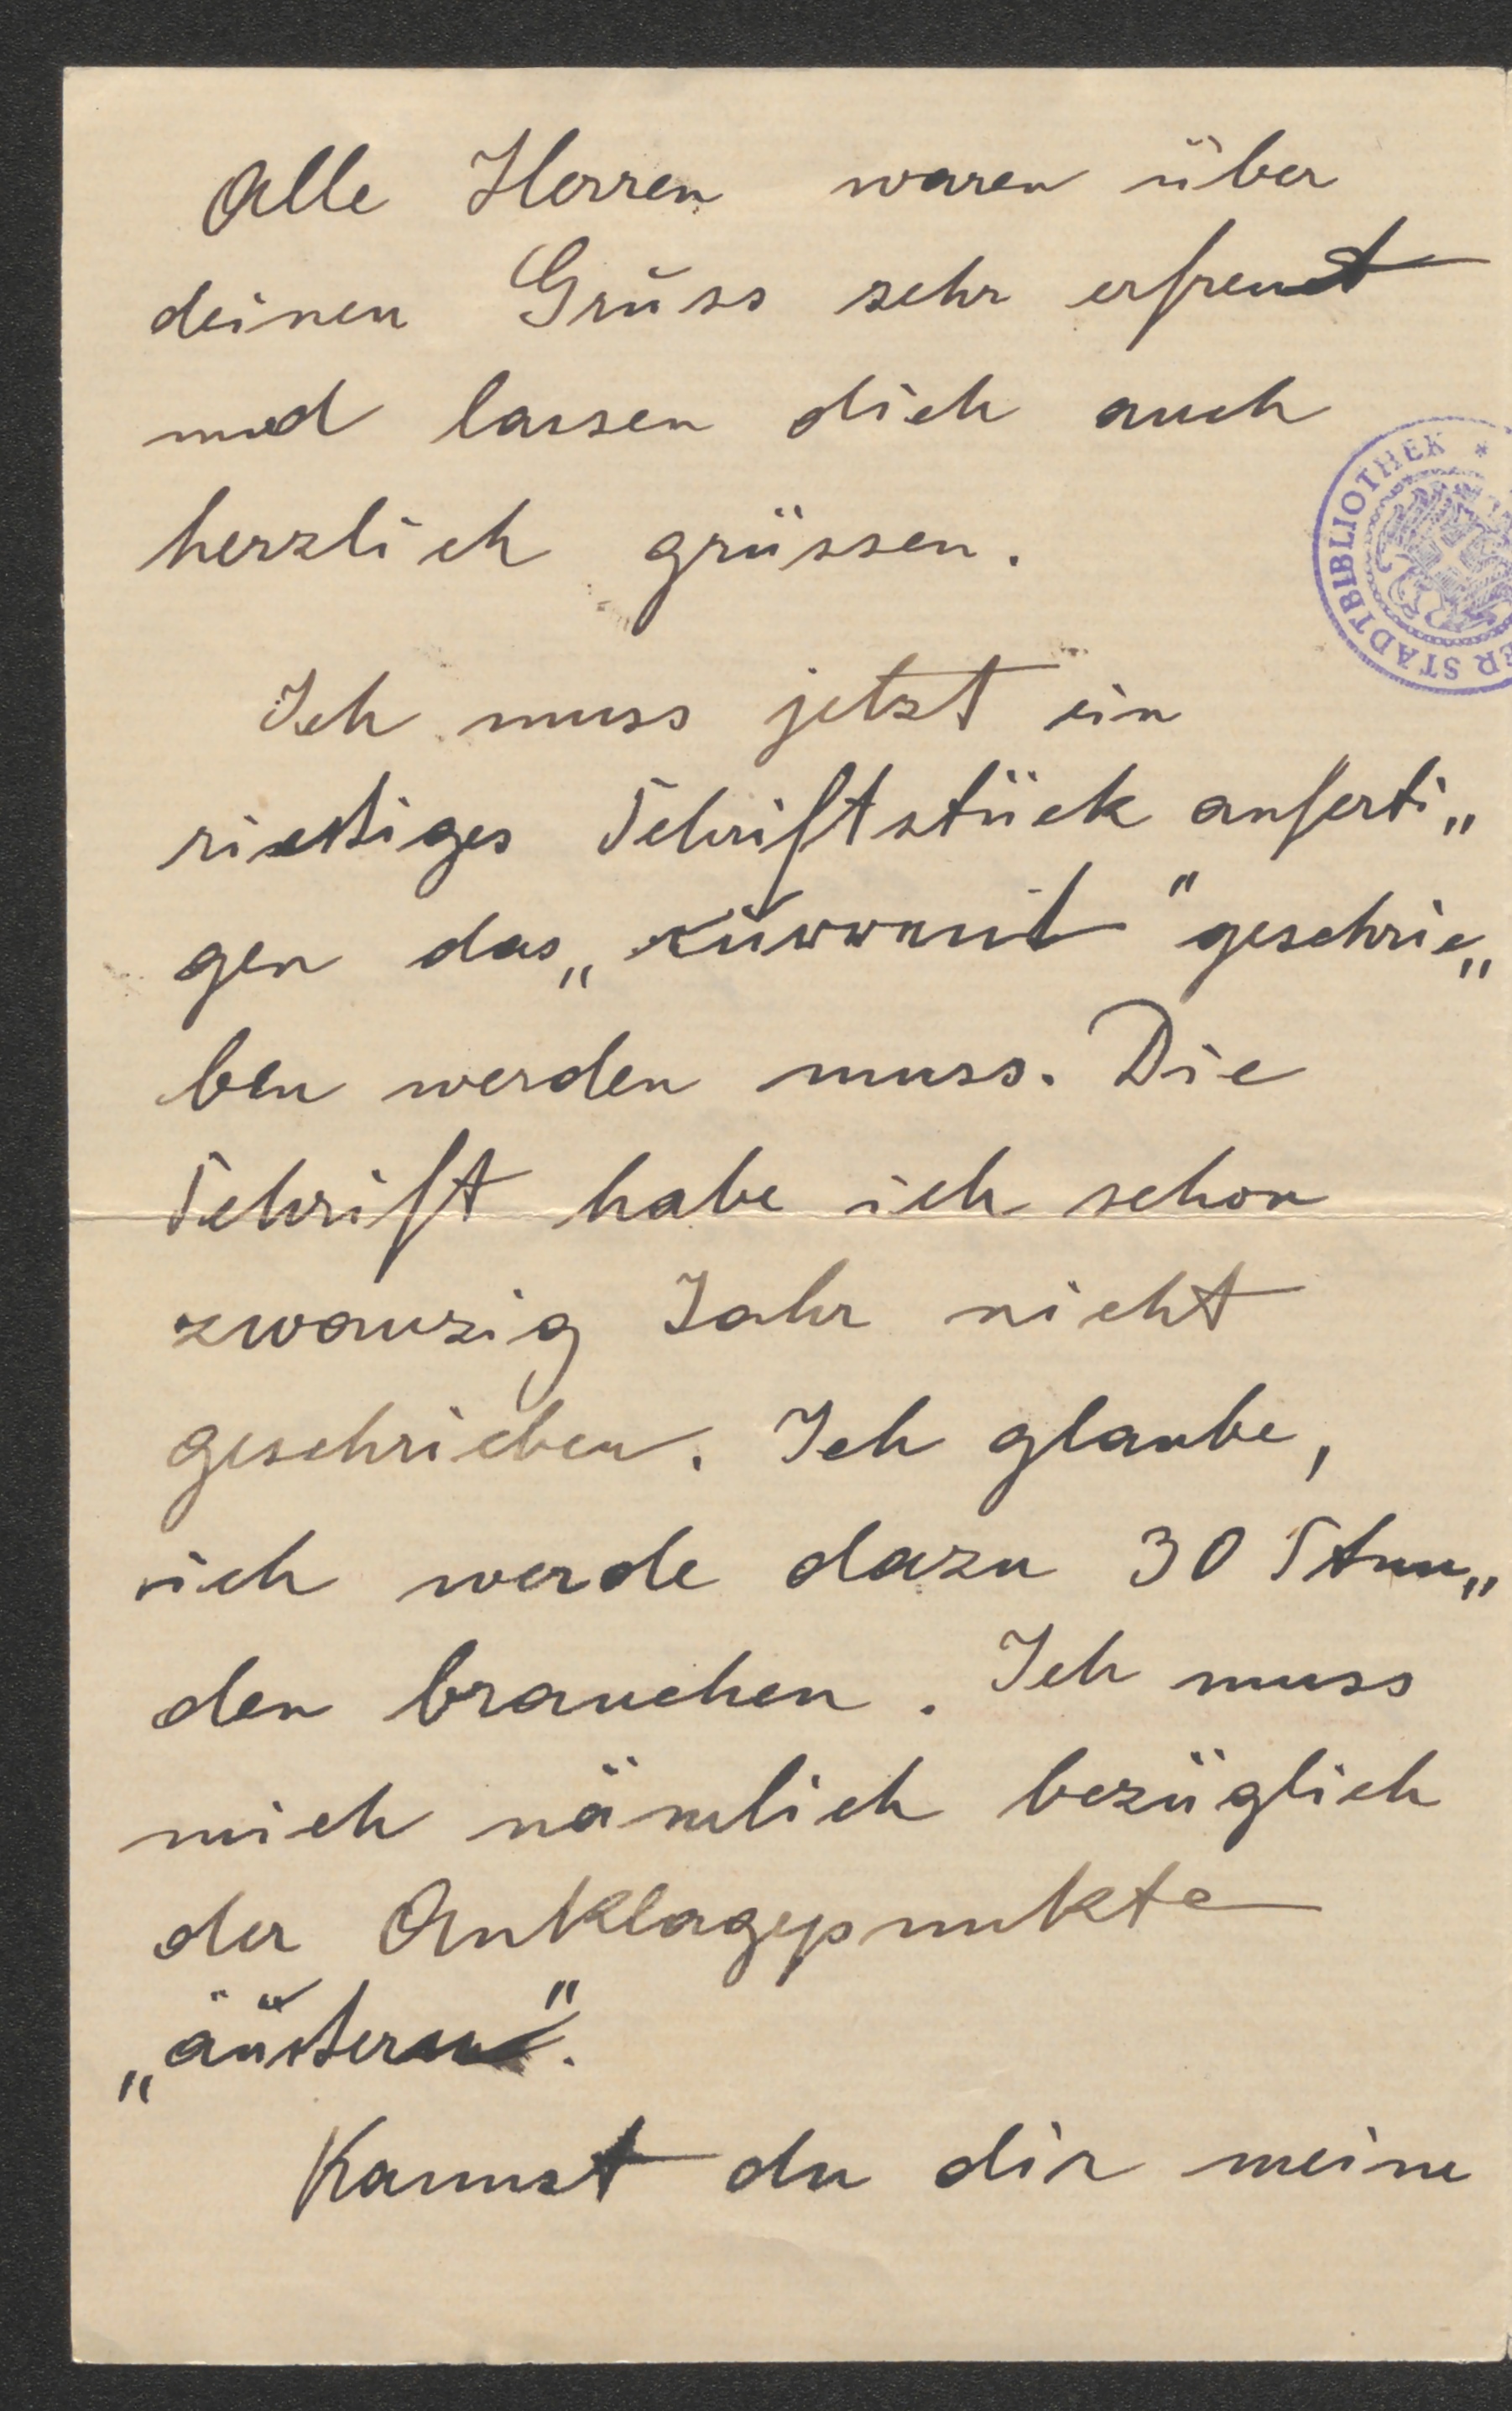 Alle Herren waren über
deinen Grŭss sehr erfreut
und lassen dich auch
herzlich grüssen.
Ich muss jetzt ein
Schriftstück anferti„
gen das „ "geschrie„
ben werden muss. Die
Schrift habe ich schon
zwanzig Jahr nicht
geschrieben. Ich glaube,
ich werde dazu 30 Stun„
den brauchen. Ich muss
mich nämlich bezüglich
der Anklagepunkte
Kannst du dir meine
BIBLIOTHEK *
ER STADT